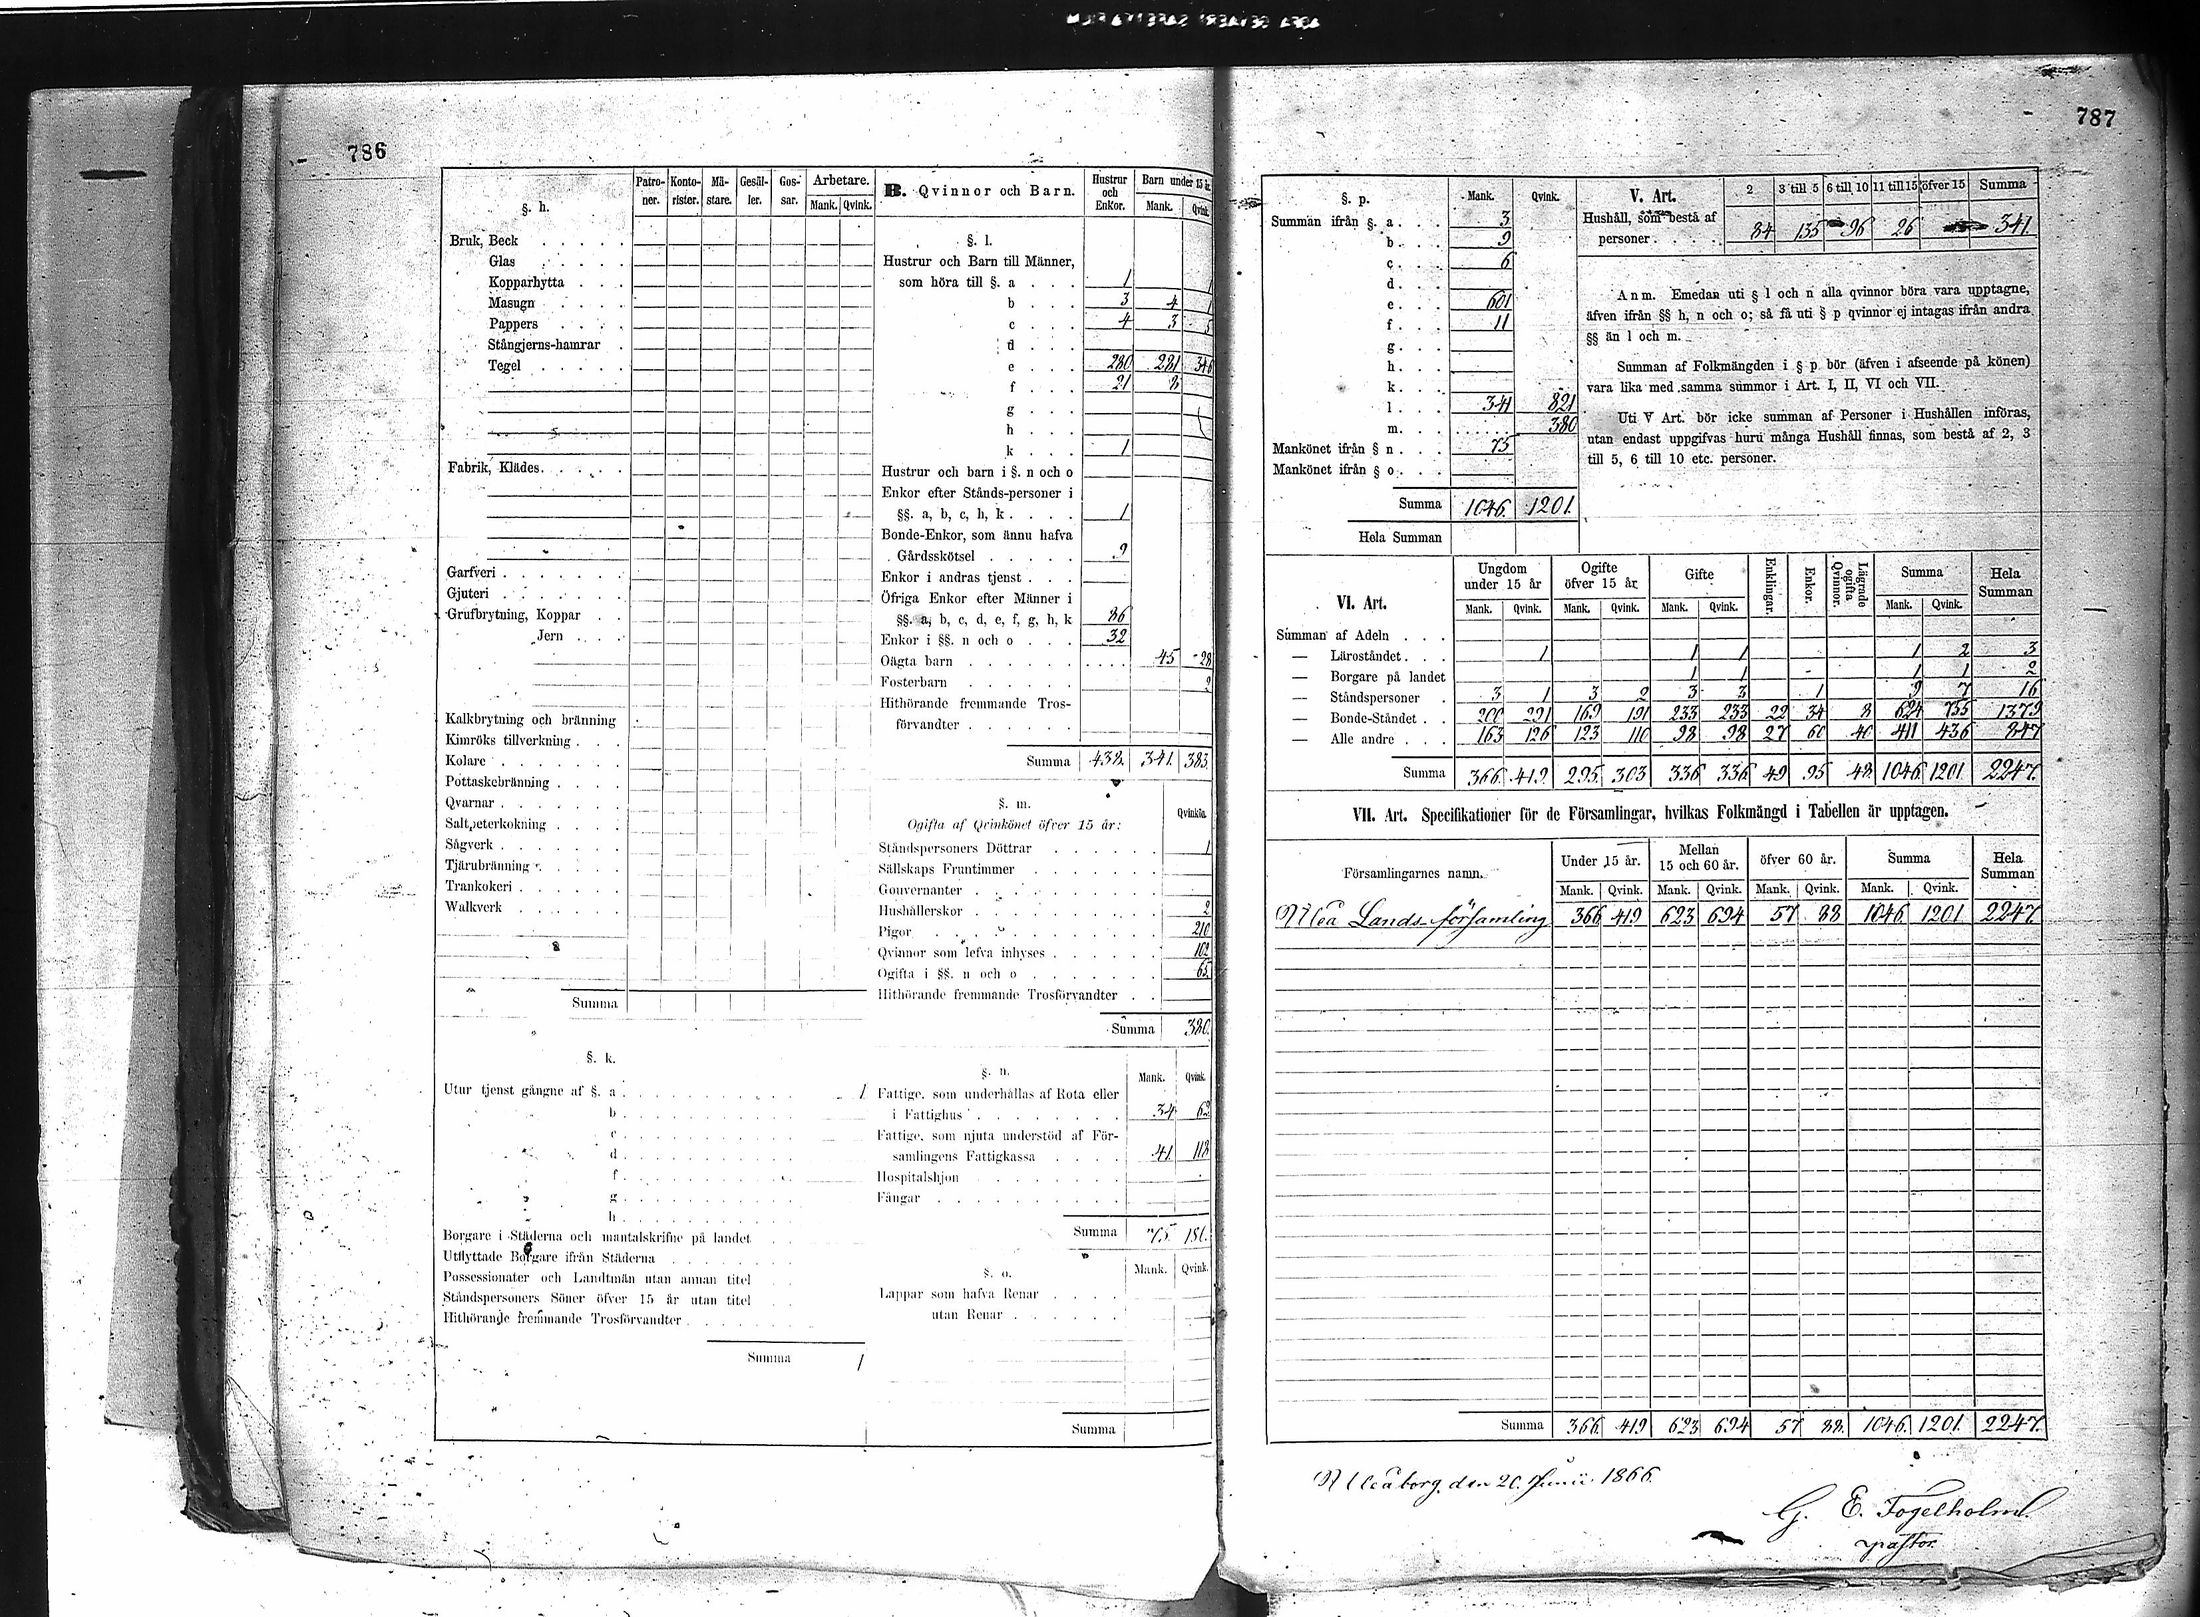 786
§. h.
Patroner. Kontorister. Mästare. Gesäller. Gossar. Arbetare. Mank. Qvink.
Bruk, Beck
Glas
Kopparhytta
Masugn
Pappers
Stångjerns-hamrar
Tegel
Fabrik, Klädes
Garfveri
Gjuteri
Grufbrytning, Koppar
Jern
Kalkbrytning och bränning
Kimröks tillverkning
Kolare
Pottaskebränning
Qvarnar
Saltpeterkokning
Sågverk
Tjärubränning
Trankokeri
Walkverk
Summa
§. k.
Utur tjenst gångne af §. a 1
b
c
d
f
g
h
Borgare i Städerna och mantalskrifne på landet
Utflyttade Borgare ifrån Städerna
Possessionater och Landtmän utan annan titel
Ståndspersoners Söner öfver 15 år utan titel
Hithörande fremmande Trosförvandter
Summa 1
B. Qvinnor och Barn. Hustrur och Enkor. Barn under 15 år. Mank. Qvink.
§. l.
Hustrur och Barn till Männer,
som höra till §. a 1 1
b 3 4 1
c 4 3 5
d
e 280 281 346
f 21 8
g
h
k 1
Hustrur och barn i §. n och o
Enkor efter Stånds-personer i
§§. a, b, c, h, k 1
Bonde-Enkor, som ännu hafva
Gårdsskötsel 9
Enkor i andras tjenst
Öfriga Enkor efter Männer i
§§. a, b, c, d, e, f, g, h, k 86
Enkor i §§. n och o 32
Oägta barn 45 28
Fosterbarn 2
Hithörande fremmande Trosförvandter
Summa 438. 341. 383.
§. m.
Ogifta af Qvinkönet öfver 15 år: Qvinkön.
Ståndspersoners Döttrar 1
Sällskaps Fruntimmer
Gouvernanter
Hushållerskor 2
Pigor 210
Qvinnor som lefva inhyses 102
Ogifta i §§. n och o 65
Hithörande fremmande Trosförvandter
Summa 380.
§. n. Mank. Qvink.
Fattige, som underhållas af Rota eller
i Fattighus 34 62
Fattige, som njuta understöd af Församlingens Fattigkassa 41 118
Hospitalshjon
Fångar
Summa 75. 180.
§. o. Mank. Qvink.
Lappar som hafva Renar
utan Renar
Summa
787
§. p. Mank. Qvink.
Summan ifrån §. a 3
b 9
c 6
d
e 601
f 11
g
h
k
l 341 821
m 380
Mankönet ifrån § n 75
Mankönet ifrån § o
Summa 1046. 1201.
Hela Summan
V. Art. 2 3 till 5 6 till 10 11 till 15 öfver 15 Summa
Hushåll, som bestå af
personer 84 135 96 26 341.
Anm. Emedan uti § l och n alla qvinnor böra vara upptagne,
äfven ifrån §§ h, n och o; så få uti § p qvinnor ej intagas ifrån andra
§§ än l och m.
Summan af Folkmängden i § p bör (äfven i afseende på könen)
vara lika med samma summor i Art. I, II, VI och VII.
Uti V Art. bör icke summan af Personer i Hushållen införas,
utan endast uppgifvas huru många Hushåll finnas, som bestå af 2, 3
till 5, 6 till 10 etc. personer.
VI. Art. Ungdom under 15 år Ogifte öfver 15 år Gifte Enklingar. Enkor. Lägrade ogifta Qvinnor. Summa Hela Summan
Mank. Qvink. Mank. Qvink. Mank. Qvink. Mank. Qvink.
Summan af Adeln
— Läroståndet 1 1 1 1 2 3
— Borgare på landet 1 1 1 1 2
— Ståndspersoner 3 1 3 2 3 3 1 9 7 16
— Bonde-Ståndet 200 291 169 191 233 233 22 34 8 624 755 1379
— Alle andre 163 126 123 110 98 98 27 60 40 411 436 847
Summa 366. 419. 295. 303 336 336 49 95 48 1046 1201 2247.
VII. Art. Specifikationer för de Församlingar, hvilkas Folkmängd i Tabellen är upptagen.
Församlingarnes namn. Under 15 år. Mellan 15 och 60 år. öfver 60 år. Summa Hela Summan
Mank. Qvink. Mank. Qvink. Mank. Qvink. Mank. Qvink.
Uleå Lands-församling 366 419 623 694 57 88 1046 1201 2247.
Summa 366. 419 623 694 57 88. 1046. 1201. 2247.
Uleåborg, den 20. Junii 1866.
G. E. Fogelholm.
pastor.